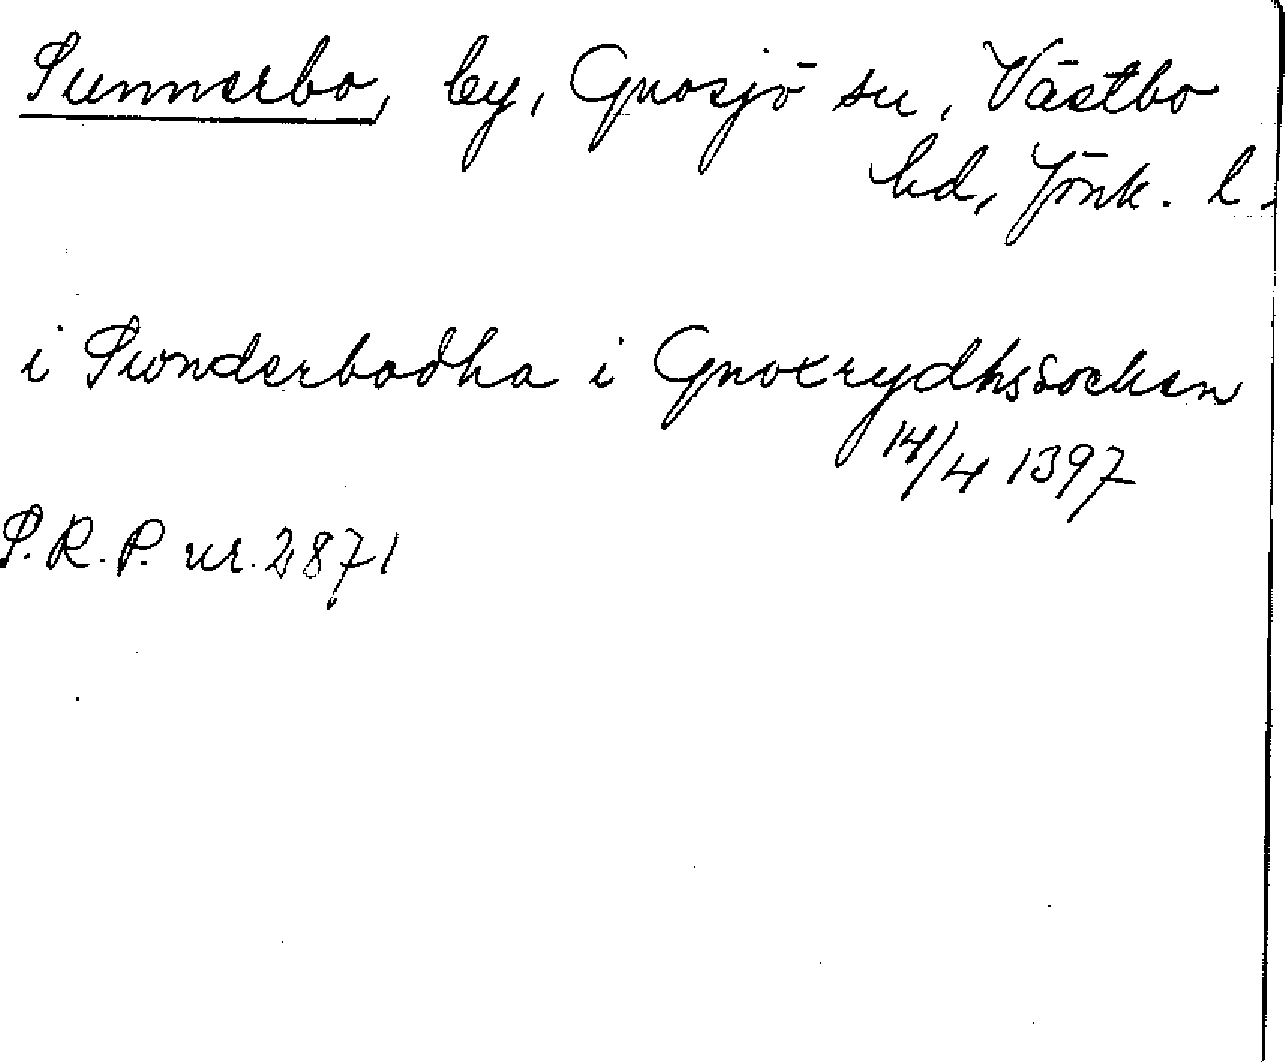 Sunnerbo, by, Gnosjö sn, Västbo
hd, Jönk. l.
i Swnderbodha i Gnoxrydhssocken
14/4 1397
S.R.P. nr. 2871